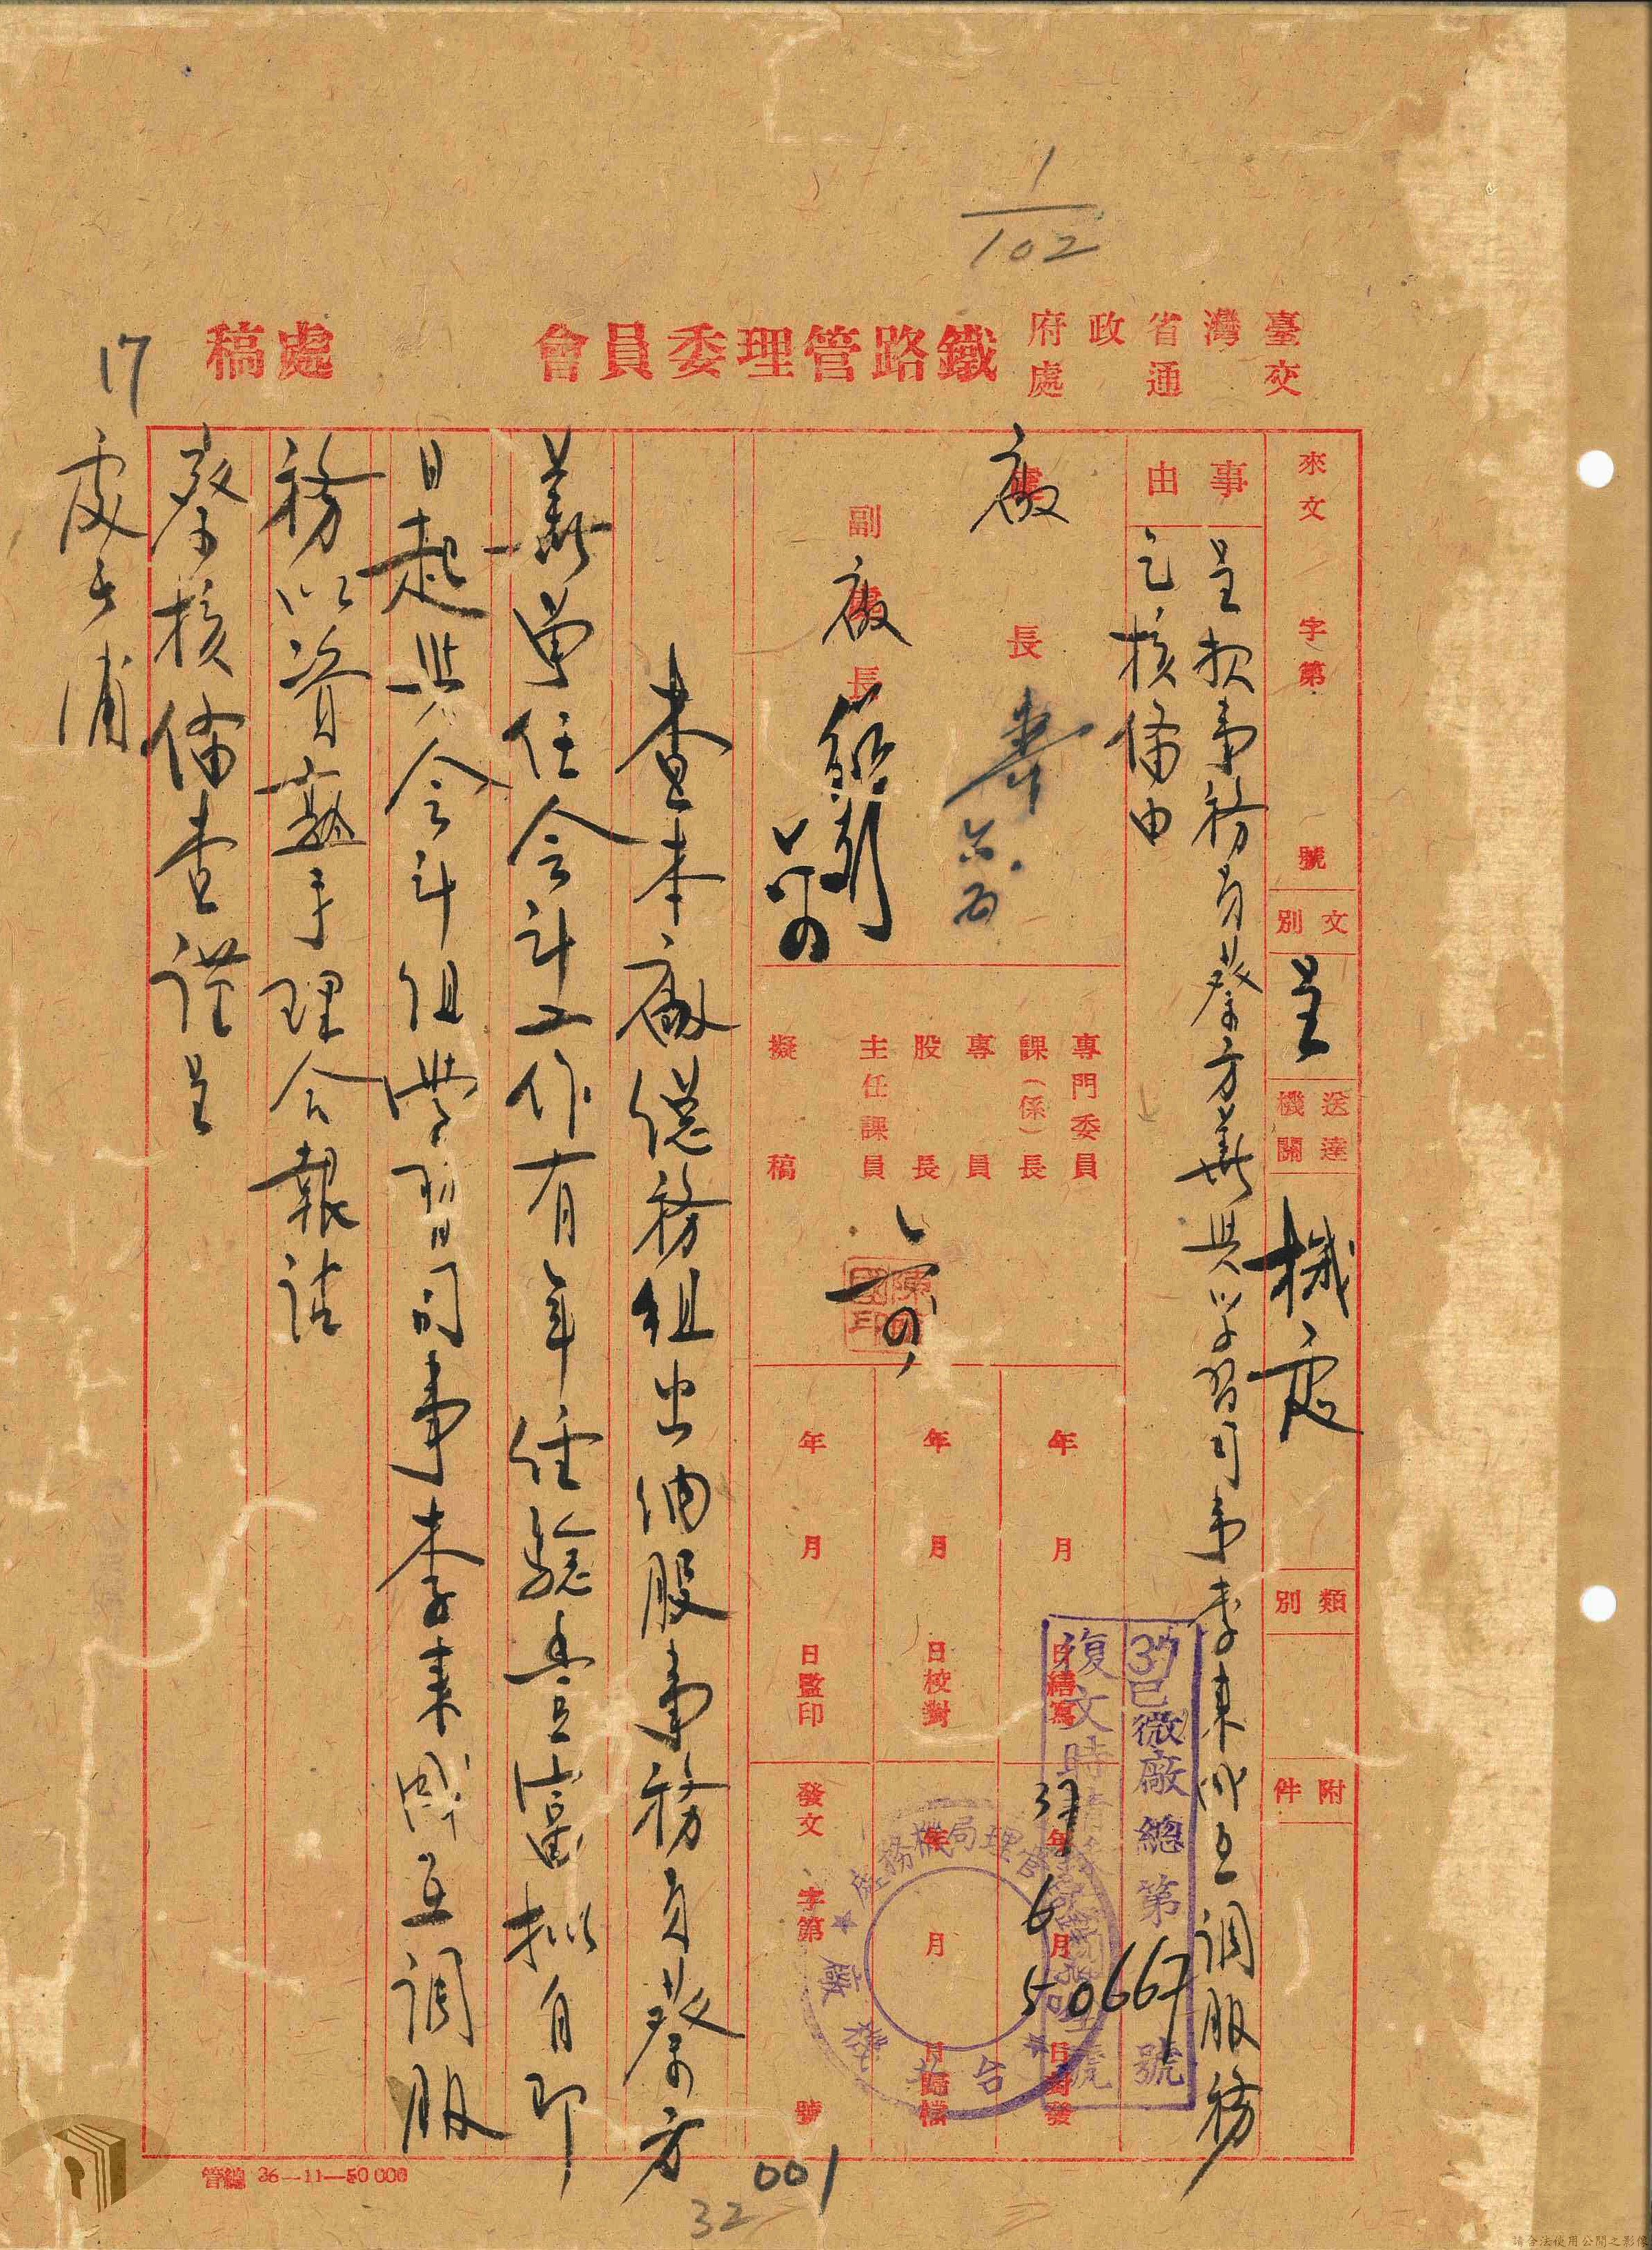 1
102
臺灣省政府
交通處
鐵路管理委員會
處稿
17
來文 字第 號
文別 呈
送達機關 機處
類別
附件
事由
呈拟事務員蔡方義與學習司事李東成互調服務
乞核備由
處長
廠
副處長
廠
六
專門委員
課(係)長
專員
股長
主任課員
擬稿
年 月 日繕寫
年 月 日校對
年 月 日監印
37年6月5日封發
年 月 日歸檔
發文 字第 號
37巳 廠總第0667號
復文時請
查本廠總務組出納股事務員蔡方
義曾任会計工作有年經驗豊富拟自即
日起與会計組學習司事李東成互調服
務以資熟手理合報請
察核備查謹呈
處長浦
管鐵 36—11—50000
001
32
請合法使用公開之影像